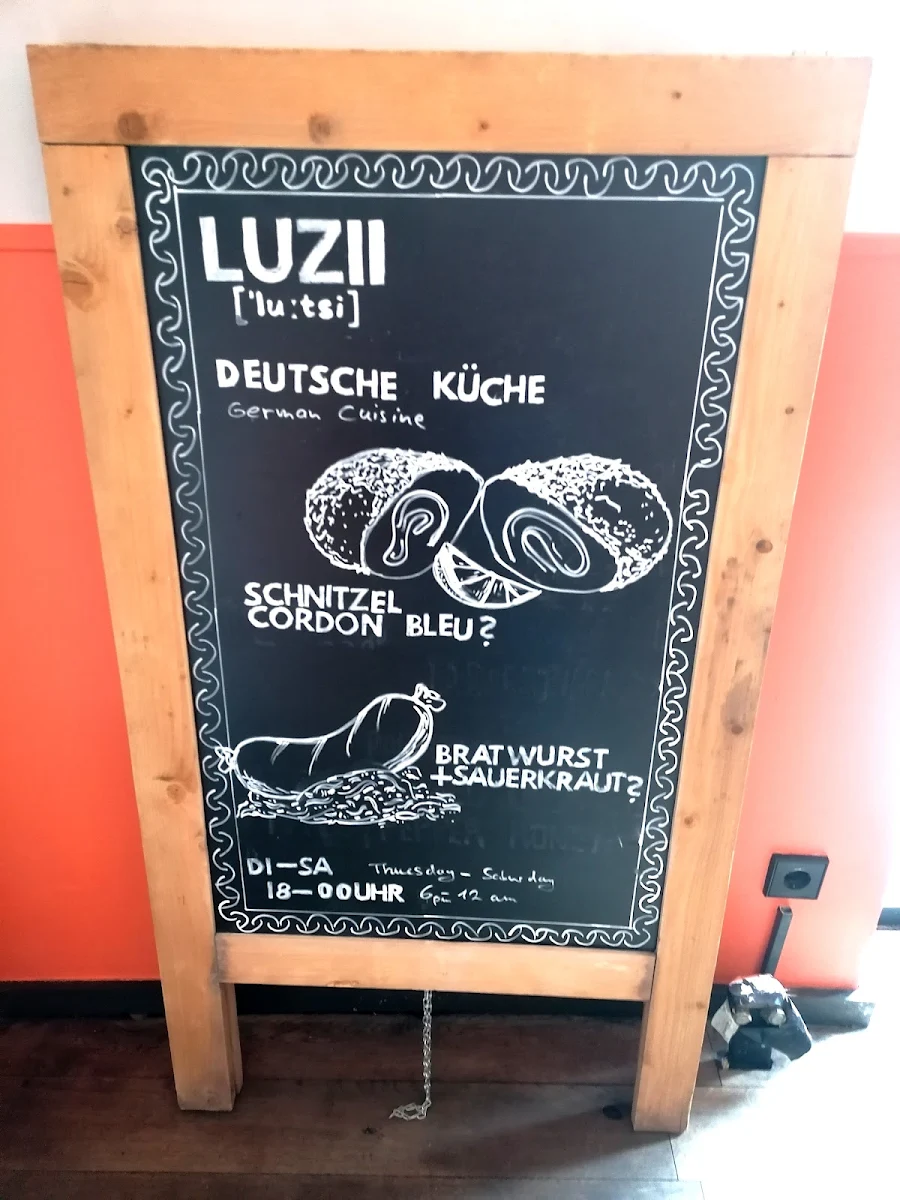 LUZII
['lu:tsi]
DEUTSCHE KÜCHE
German Cuisine
SCHNITZEL
CORDON BLEU?
BRATWURST
+SAUERKRAUT?
DI-SA Thuesday - Saturday
18-00UHR 6pm 12 am